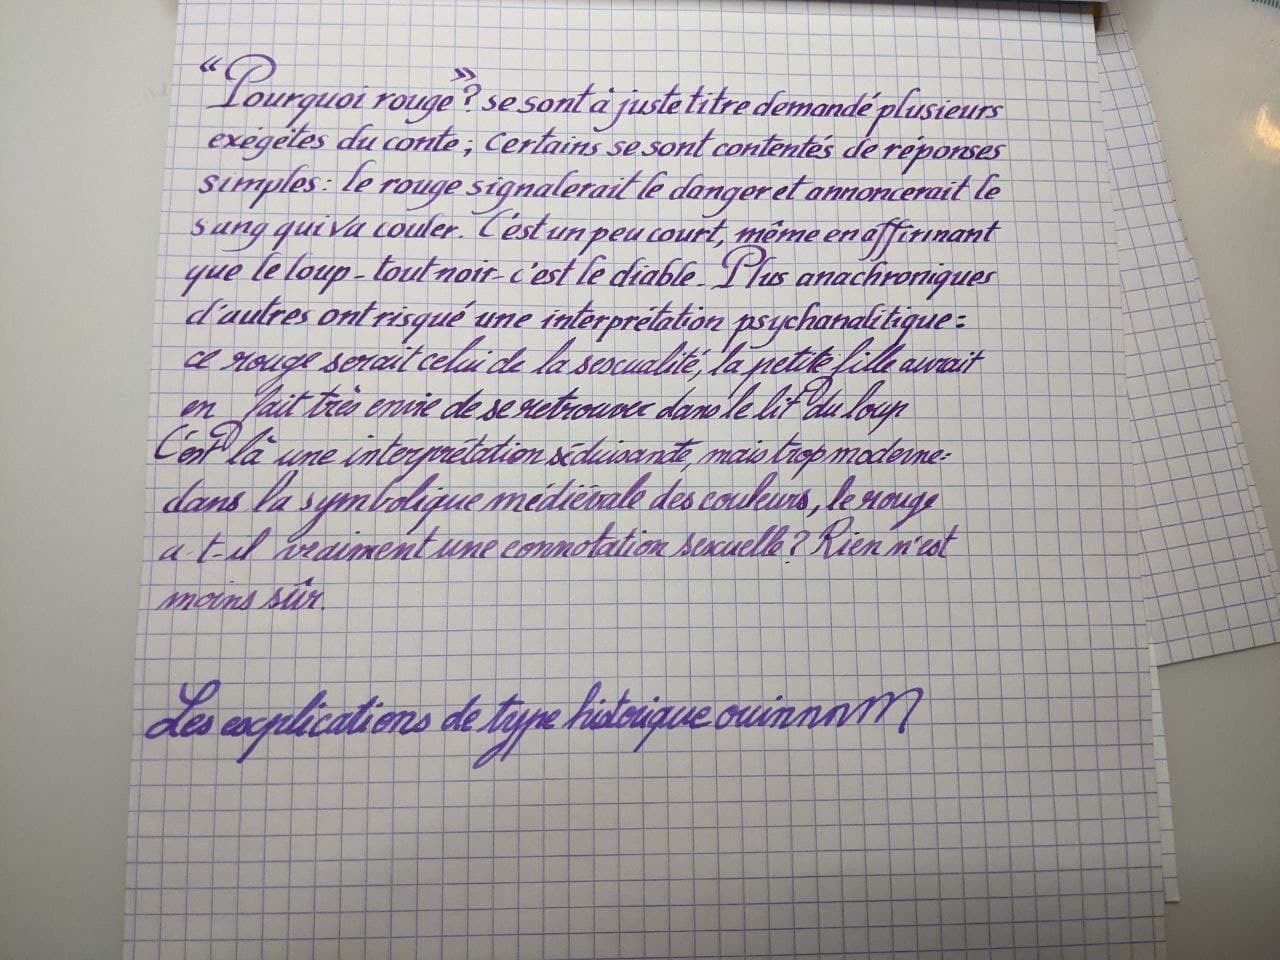 "Pourquoi rouge"? se sont à juste titre demandé plusieurs
exégètes du conte ; certains se sont contentés de réponses
simples : le rouge signalerait le danger et annoncerait le
sang qui va couler. C'est un peu court, même en affirmant
que le loup - tout noir - c'est le diable. Plus anachroniques
d'autres ont risqué une interprétation psychanalitique :
ce rouge serait celui de la sescualité, la petite fille aurait
en fait très envie de se retrouver dans le lit du loup
C'est là une interprétation séduisante, mais trop moderne :
dans la symbolique médiévale des couleurs, le rouge
a-t-il vraiment une connotation sexuelle ? Rien n'est
moins sûr.
Les explications de type historique